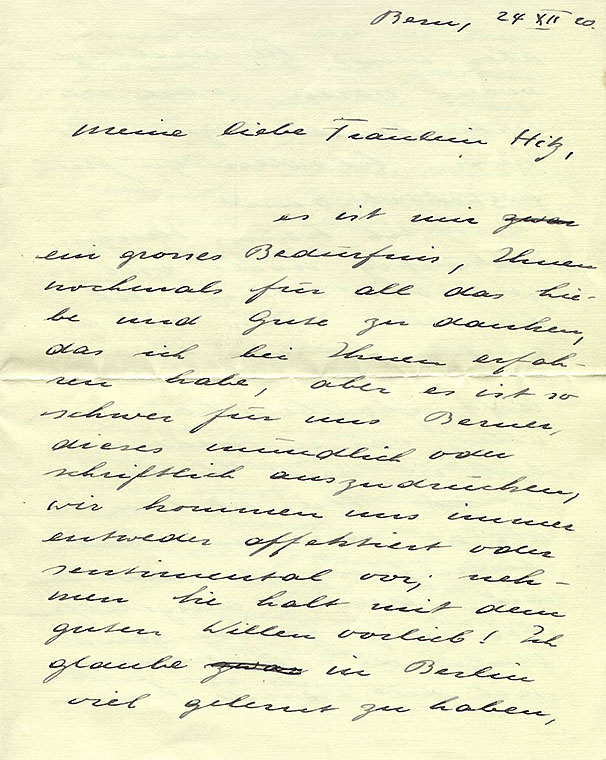 Bern, 24 XII 20.
Meine liebe Fräulein Hitz,
es ist mir zwar
ein grosses Bedürfnis, Ihnen
nochmals für all das Lie-
be und Gute zu danken,
das ich bei Ihnen erfah-
ren habe, aber es ist so
schwer für uns Berner,
dieses mündlich oder
schriftlich auszudrücken,
wir kommen uns immer
entweder affektiert oder
sentimental vor; neh-
men Sie halt mit dem
guten Willen vorlieb! Ich
glaube zwar in Berlin
viel gelernt zu haben,